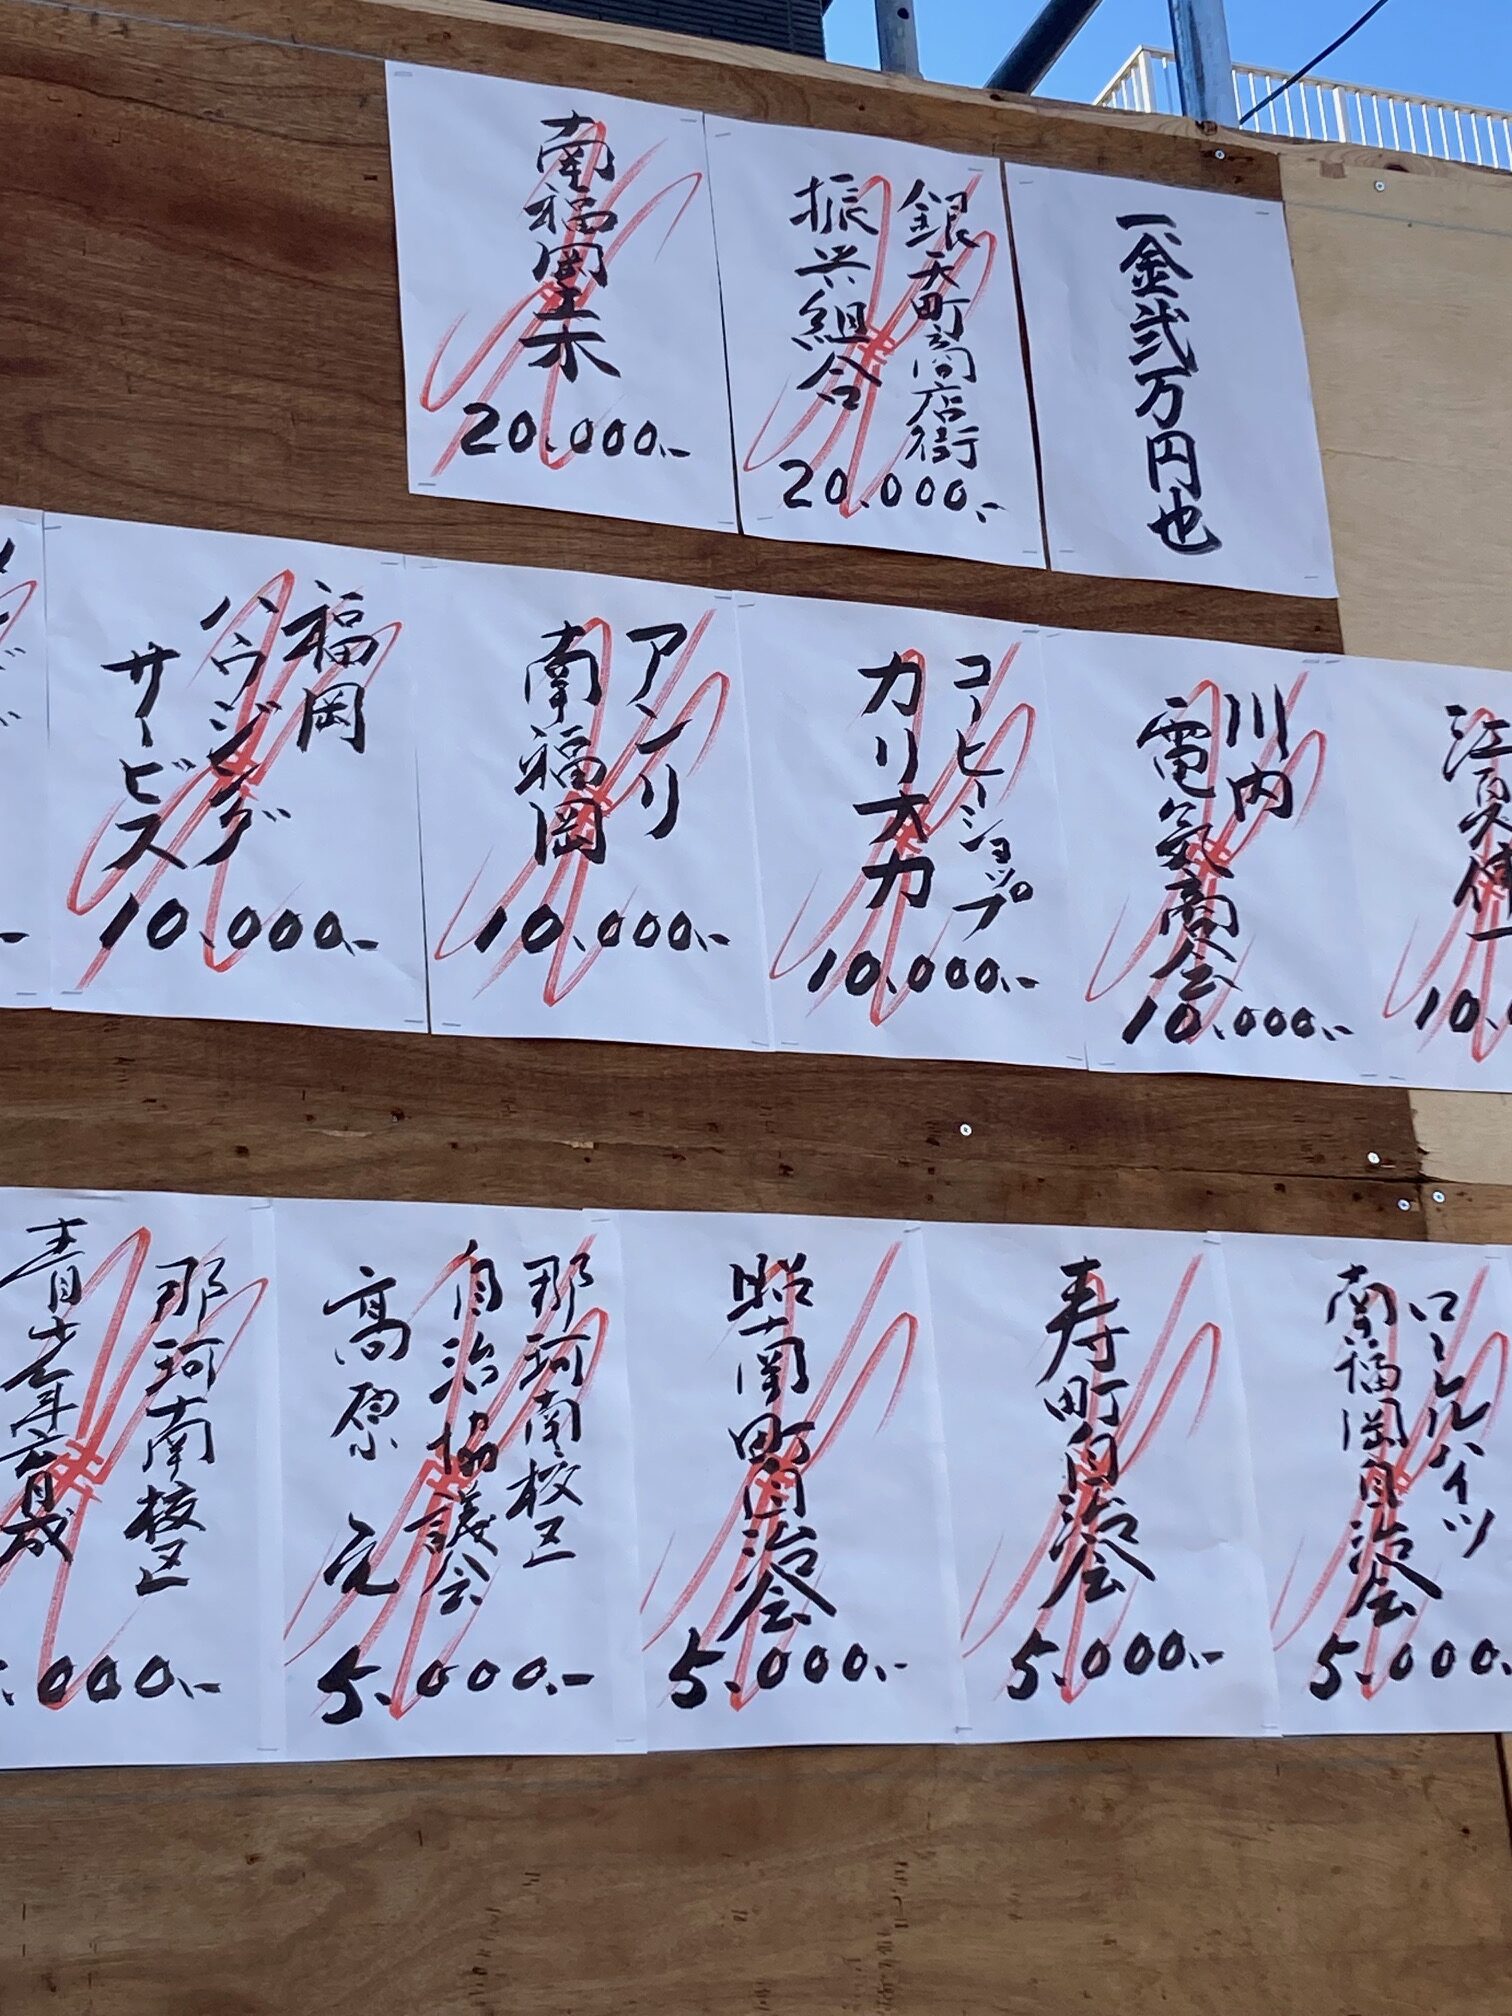 一、金弐万円也
銀天町商店街
振興組合
20,000.-
南福岡土木
20,000.-
川内
電気商会
10,000.-
コーヒーショップ
カリオカ
10,000.-
アンリ
南福岡
10,000.-
福岡
ハウジング
サービス
10,000.-
ローレルハイツ
南福岡自治会
5,000.
寿町自治会
5,000.-
昭南町自治会
5,000.-
那珂南校区
自治協議会
高原
5,000.-
那珂南校区
青少年育成
,000.-